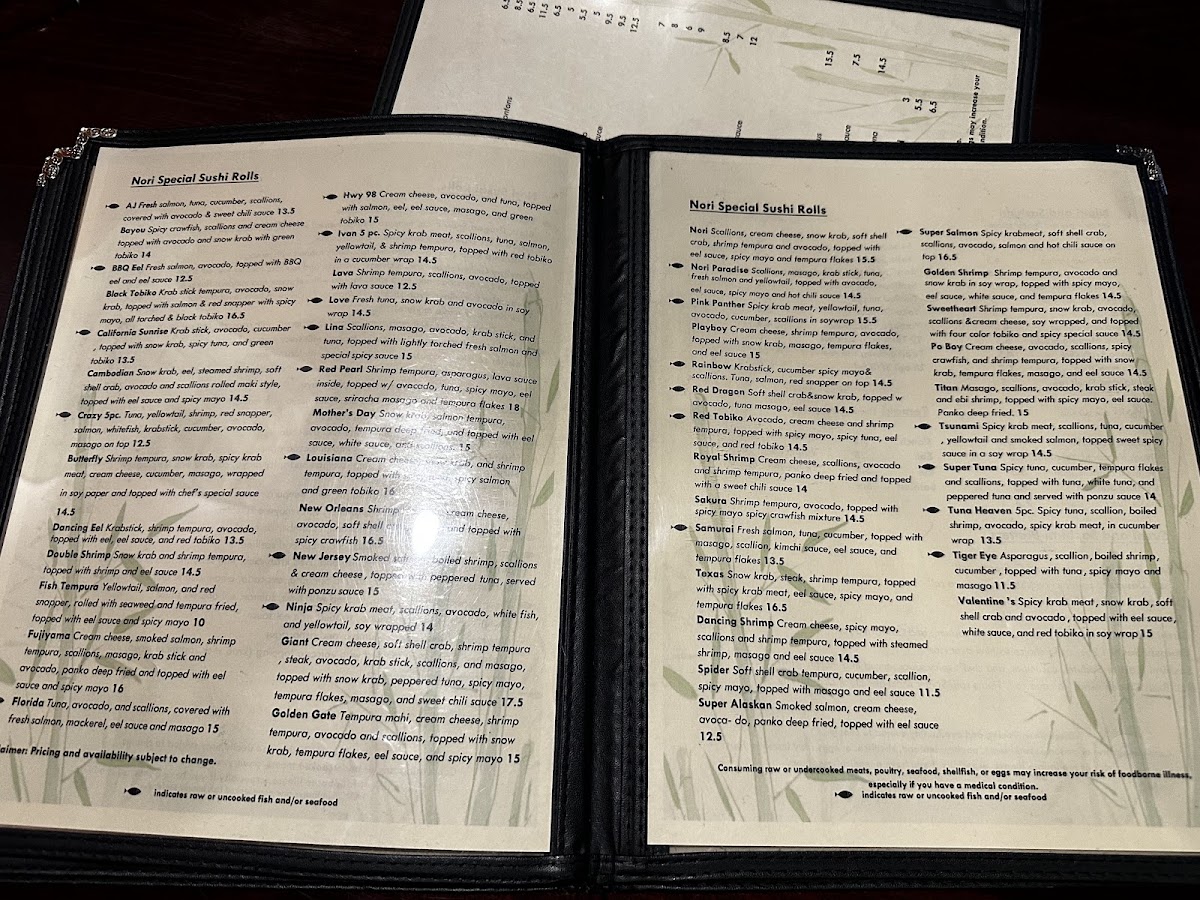 6.5
8.5
6.5
11.5
6.5
5
5.5
5
9.5
9.5
12.5
7
8
6
9
8.5
7
12
15.5
7.5
14.5
3
5.5
6.5
sauce
sauce
may increase your
condition.
Nori Special Sushi Rolls
AJ Fresh salmon, tuna, cucumber, scallions,
covered with avocado & sweet chili sauce 13.5
Bayou Spicy crawfish, scallions and cream cheese
topped with avocado and snow krab with green
tobiko 14
BBQ Eel Fresh salmon, avocado, topped with BBQ
eel and eel sauce 12.5
Black Tobiko Krab stick tempura, avocado, snow
krab, topped with salmon & red snapper with spicy
mayo, all torched & black tobiko 16.5
California Sunrise Krab stick, avocado, cucumber
, topped with snow krab, spicy tuna, and green
tobiko 13.5
Cambodian Snow krab, eel, steamed shrimp, soft
shell crab, avocado and scallions rolled maki style,
topped with eel sauce and spicy mayo 14.5
Crazy 5pc. Tuna, yellowtail, shrimp, red snapper,
salmon, whitefish, krabstick, cucumber, avocado,
masago on top 12.5
Butterfly Shrimp tempura, snow krab, spicy krab
meat, cream cheese, cucumber, masago, wrapped
in soy paper and topped with chef's special sauce
14.5
Dancing Eel Krabstick, shrimp tempura, avocado,
topped with eel, eel sauce, and red tobiko 13.5
Double Shrimp Snow krab and shrimp tempura,
topped with shrimp and eel sauce 14.5
Fish Tempura Yellowtail, salmon, and red
snapper, rolled with seaweed and tempura fried,
topped with eel sauce and spicy mayo 10
Fujiyama Cream cheese, smoked salmon, shrimp
tempura, scallions, masago, krab stick and
avocado, panko deep fried and topped with eel
sauce and spicy mayo 16
Florida Tuna, avocado, and scallions, covered with
fresh salmon, mackerel, eel sauce and masago 15
laimer: Pricing and availability subject to change.
indicates raw or uncooked fish and/or seafood
Hwy 98 Cream cheese, avocado, and tuna, topped
with salmon, eel, eel sauce, masago, and green
tobiko 15
Ivan 5 pc. Spicy krab meat, scallions, tuna, salmon,
yellowtail, & shrimp tempura, topped with red tobiko
in a cucumber wrap 14.5
Lava Shrimp tempura, scallions, avocado, topped
with lava sauce 12.5
Love Fresh tuna, snow krab and avocado in soy
wrap 14.5
Lina Scallions, masago, avocado, krab stick, and
tuna, topped with lightly torched fresh salmon and
special spicy sauce 15
Red Pearl Shrimp tempura, asparagus, lava sauce
inside, topped w/ avocado, tuna, spicy mayo, eel
sauce, sriracha masago and tempura flakes 18
Mother's Day Snow krab, salmon tempura,
avocado, tempura deep fried, and topped with eel
sauce, white sauce, and 15
Louisiana Cream cheese, krab, and shrimp
tempura, topped with spicy salmon
and green tobiko 16
New Orleans Shrimp cream cheese,
avocado, soft shell and topped with
spicy crawfish 16.5
New Jersey Smoked boiled shrimp, scallions
& cream cheese, topped peppered tuna, served
with ponzu sauce 15
Ninja Spicy krab meat, scallions, avocado, white fish,
and yellowtail, soy wrapped 14
Giant Cream cheese, soft shell crab, shrimp tempura
, steak, avocado, krab stick, scallions, and masago,
topped with snow krab, peppered tuna, spicy mayo,
tempura flakes, masago, and sweet chili sauce 17.5
Golden Gate Tempura mahi, cream cheese, shrimp
tempura, avocado and scallions, topped with snow
krab, tempura flakes, eel sauce, and spicy mayo 15
Nori Special Sushi Rolls
Nori Scallions, cream cheese, snow krab, soft shell
crab, shrimp tempura and avocado, topped with
eel sauce, spicy mayo and tempura flakes 15.5
Nori Paradise Scallions, masago, krab stick, tuna,
fresh salmon and yellowtail, topped with avocado,
eel sauce, spicy mayo and hot chili sauce 14.5
Pink Panther Spicy krab meat, yellowtail, tuna,
avocado, cucumber, scallions in soywrap 15.5
Playboy Cream cheese, shrimp tempura, avocado,
topped with snow krab, masago, tempura flakes,
and eel sauce 15
Rainbow Krabstick, cucumber spicy mayo&
scallions. Tuna, salmon, red snapper on top 14.5
Red Dragon Soft shell crab&snow krab, topped w
avocado, tuna masago, eel sauce 14.5
Red Tobiko Avocado, cream cheese and shrimp
tempura, topped with spicy mayo, spicy tuna, eel
sauce, and red tobiko 14.5
Royal Shrimp Cream cheese, scallions, avocado
and shrimp tempura, panko deep fried and topped
with a sweet chili sauce 14
Sakura Shrimp tempura, avocado, topped with
spicy mayo spicy crawfish mixture 14.5
Samurai Fresh salmon, tuna, cucumber, topped with
masago, scallion, kimchi sauce, eel sauce, and
tempura flakes 13.5
Texas Snow krab, steak, shrimp tempura, topped
with spicy krab meat, eel sauce, spicy mayo, and
tempura flakes 16.5
Dancing Shrimp Cream cheese, spicy mayo,
scallions and shrimp tempura, topped with steamed
shrimp, masago and eel sauce 14.5
Spider Soft shell crab tempura, cucumber, scallion,
spicy mayo, topped with masago and eel sauce 11.5
Super Alaskan Smoked salmon, cream cheese,
avoca- do, panko deep fried, topped with eel sauce
12.5
Super Salmon Spicy krabmeat, soft shell crab,
scallions, avocado, salmon and hot chili sauce on
top 16.5
Golden Shrimp Shrimp tempura, avocado and
snow krab in soy wrap, topped with spicy mayo,
eel sauce, white sauce, and tempura flakes 14.5
Sweetheart Shrimp tempura, snow krab, avocado,
scallions &cream cheese, soy wrapped, and topped
with four color tobiko and spicy special sauce 14.5
Po Boy Cream cheese, avocado, scallions, spicy
crawfish, and shrimp tempura, topped with snow
krab, tempura flakes, masago, and eel sauce 14.5
Titan Masago, scallions, avocado, krab stick, steak
and ebi shrimp, topped with spicy mayo, eel sauce.
Panko deep fried. 15
Tsunami Spicy krab meat, scallions, tuna, cucumber
, yellowtail and smoked salmon, topped sweet spicy
sauce in a soy wrap 14.5
Super Tuna Spicy tuna, cucumber, tempura flakes
and scallions, topped with tuna, white tuna, and
peppered tuna and served with ponzu sauce 14
Tuna Heaven 5pc. Spicy tuna, scallion, boiled
shrimp, avocado, spicy krab meat, in cucumber
wrap 13.5
Tiger Eye Asparagus, scallion, boiled shrimp,
cucumber, topped with tuna, spicy mayo and
masago 11.5
Valentine 's Spicy krab meat, snow krab, soft
shell crab and avocado, topped with eel sauce,
white sauce, and red tobiko in soy wrap 15
Consuming raw or undercooked meats, poultry, seafood, shellfish, or eggs may increase your risk of foodborne illness,
especially if you have a medical condition.
indicates raw or uncooked fish and/or seafood